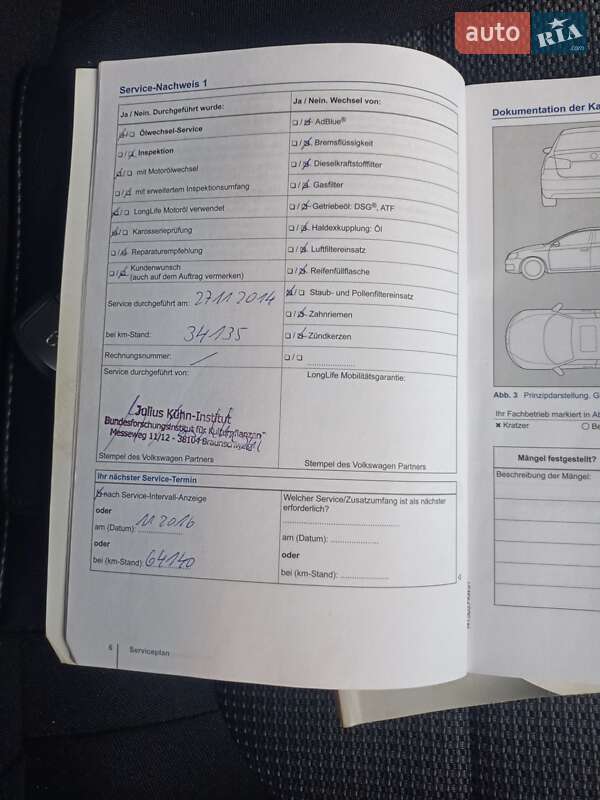 auto RIA .com
Service-Nachweis 1
Ja / Nein. Durchgeführt wurde:
Ölwechsel-Service
Inspektion
mit Motorölwechsel
mit erweitertem Inspektionsumfang
LongLife Motoröl verwendet
Karosserieprüfung
Reparaturempfehlung
Kundenwunsch
(auch auf dem Auftrag vermerken)
Service durchgeführt am: 27 11 2014
bei km-Stand: 34135
Rechnungsnummer: /
Service durchgeführt von:
Julius Kühn-Institut
Bundesforschungsinstitut für Kulturpflanzen
Messeweg 11/12 - 38104 Braunschweig
Stempel des Volkswagen Partners
Ja / Nein. Wechsel von:
AdBlue®
Bremsflüssigkeit
Dieselkraftstofffilter
Gasfilter
Getriebeöl: DSG®, ATF
Haldexkupplung: Öl
Luftfiltereinsatz
Reifenfüllflasche
Staub- und Pollenfiltereinsatz
Zahnriemen
Zündkerzen
LongLife Mobilitätsgarantie:
Stempel des Volkswagen Partners
Ihr nächster Service-Termin
nach Service-Intervall-Anzeige
oder
am (Datum): 11 2016
oder
bei (km-Stand): 64140
Welcher Service/Zusatzumfang ist als nächster
erforderlich?
am (Datum):
oder
bei (km-Stand):
6 Serviceplan
Dokumentation der Ka
Abb. 3 Prinzipdarstellung. G
Ihr Fachbetrieb markiert in Ab
Kratzer Be
Mängel festgestellt?
Beschreibung der Mängel: